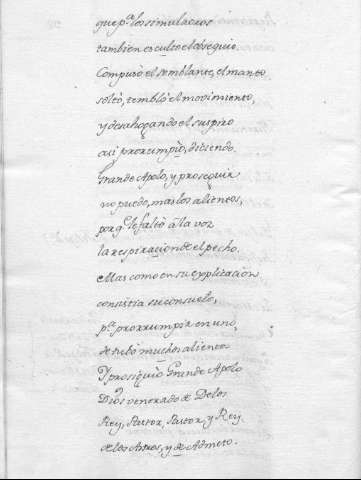 que p.ᵃ los simulacros
tambien es culto el obsequio.
Compuso el semblante, el manto
soltó, tembló el movimiento,
y desahogando el suspiro
asi prorrumpio, diciendo.
Grande Apolo, y proseguir
no puedo, mas los alientos,
porq̃ le faltó à la voz
la respiracion de el pecho.
Mas como en su explicacion
consistia su consuelo,
p.ᵃ prorrumpir en uno,
de tubo muchos alientos
Y prosiguiò Grande Apolo
Dios venerado de Delos
Rey, Pastor, Pastor, y Rey
de los Astros, y de Admeto.